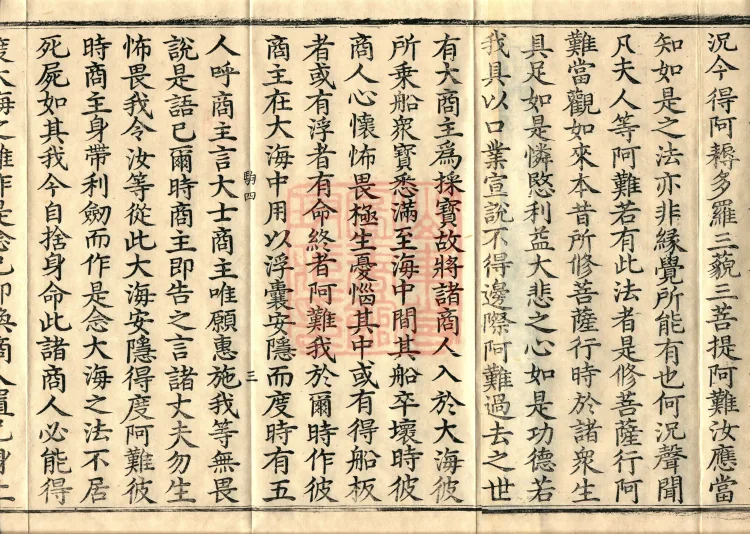 況今得阿耨多羅三藐三菩提阿難汝應當
知如是之法亦非緣覺所能有也何況聲聞
凡夫人等阿難若有此法者是修菩薩行阿
難當觀如來本昔所修菩薩行時於諸衆生
具足如是憐愍利益大悲之心如是功德若
我具以口業宣說不得邊際阿難過去之世
有大商主爲採寶故將諸商人入於大海彼
所乗船衆寶悉滿至海中間其船卒壞時彼
商人心懷怖畏極生憂惱其中或有得船板
者或有浮者有命終者阿難我於爾時作彼
商主在大海中用以浮囊安隱而度時有五
駒四
三
人呼商主言大士商主唯願惠施我等無畏
說是語已爾時商主即告之言諸丈夫勿生
怖畏我令汝等從此大海安隱得度阿難彼
時商主身帶利劒而作是念大海之法不居
死屍如其我今自捨身命此諸商人必能得
度大海之難作是念已即喚商人置己身上